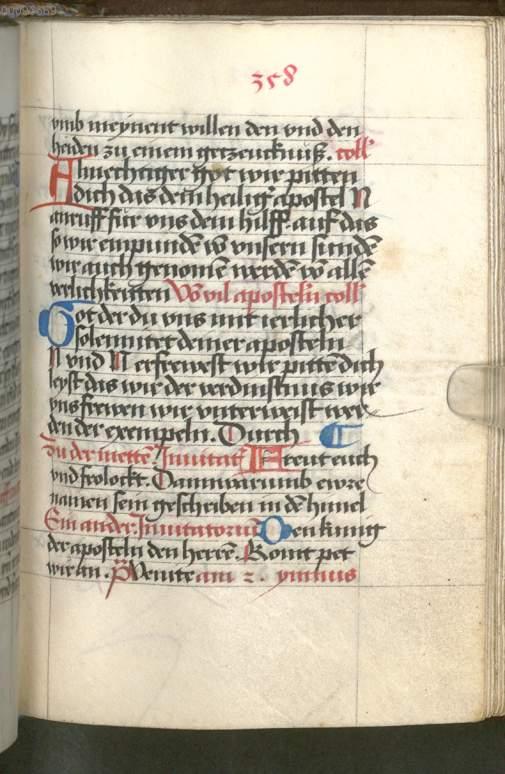 358
vmb meynent willen den vnd den
heiden zu einem getzeucknuß. coll'
Almechtiger got wir pitten
dich das dein heilig' apostel N
anruff für vns dein hilff auf das
so wir enpundē vō vnsern sundē
wir auch genomē werdē vō allē
verlichkeitten Vō vil aposteln coll'
Got der du vns mit ierlicher
solennitet deiner aposteln
N vnd N erfrewest wir pittē dich
leyst das wir der verdinstnus wir
vns frewen wir vnterweist wer
den der exempeln. Durch
Zu der mettē Inuitat' Frewt euch
vnd frolockt. Dann warumb ewre
namen sein geschriben in dē himel
Ein ander Inuitatoriū Den kunig
der aposteln den herrē. Komt pet
wir an. Venite am 2. ymnus